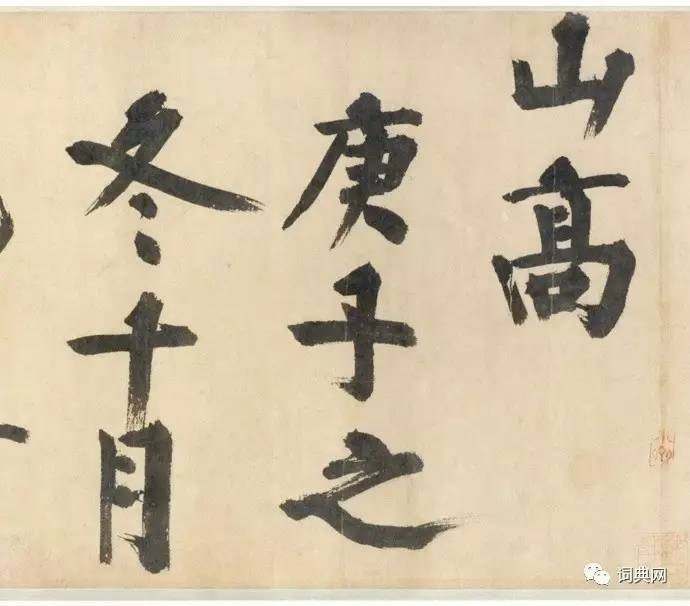 山高
庚子之
冬十月
词典网